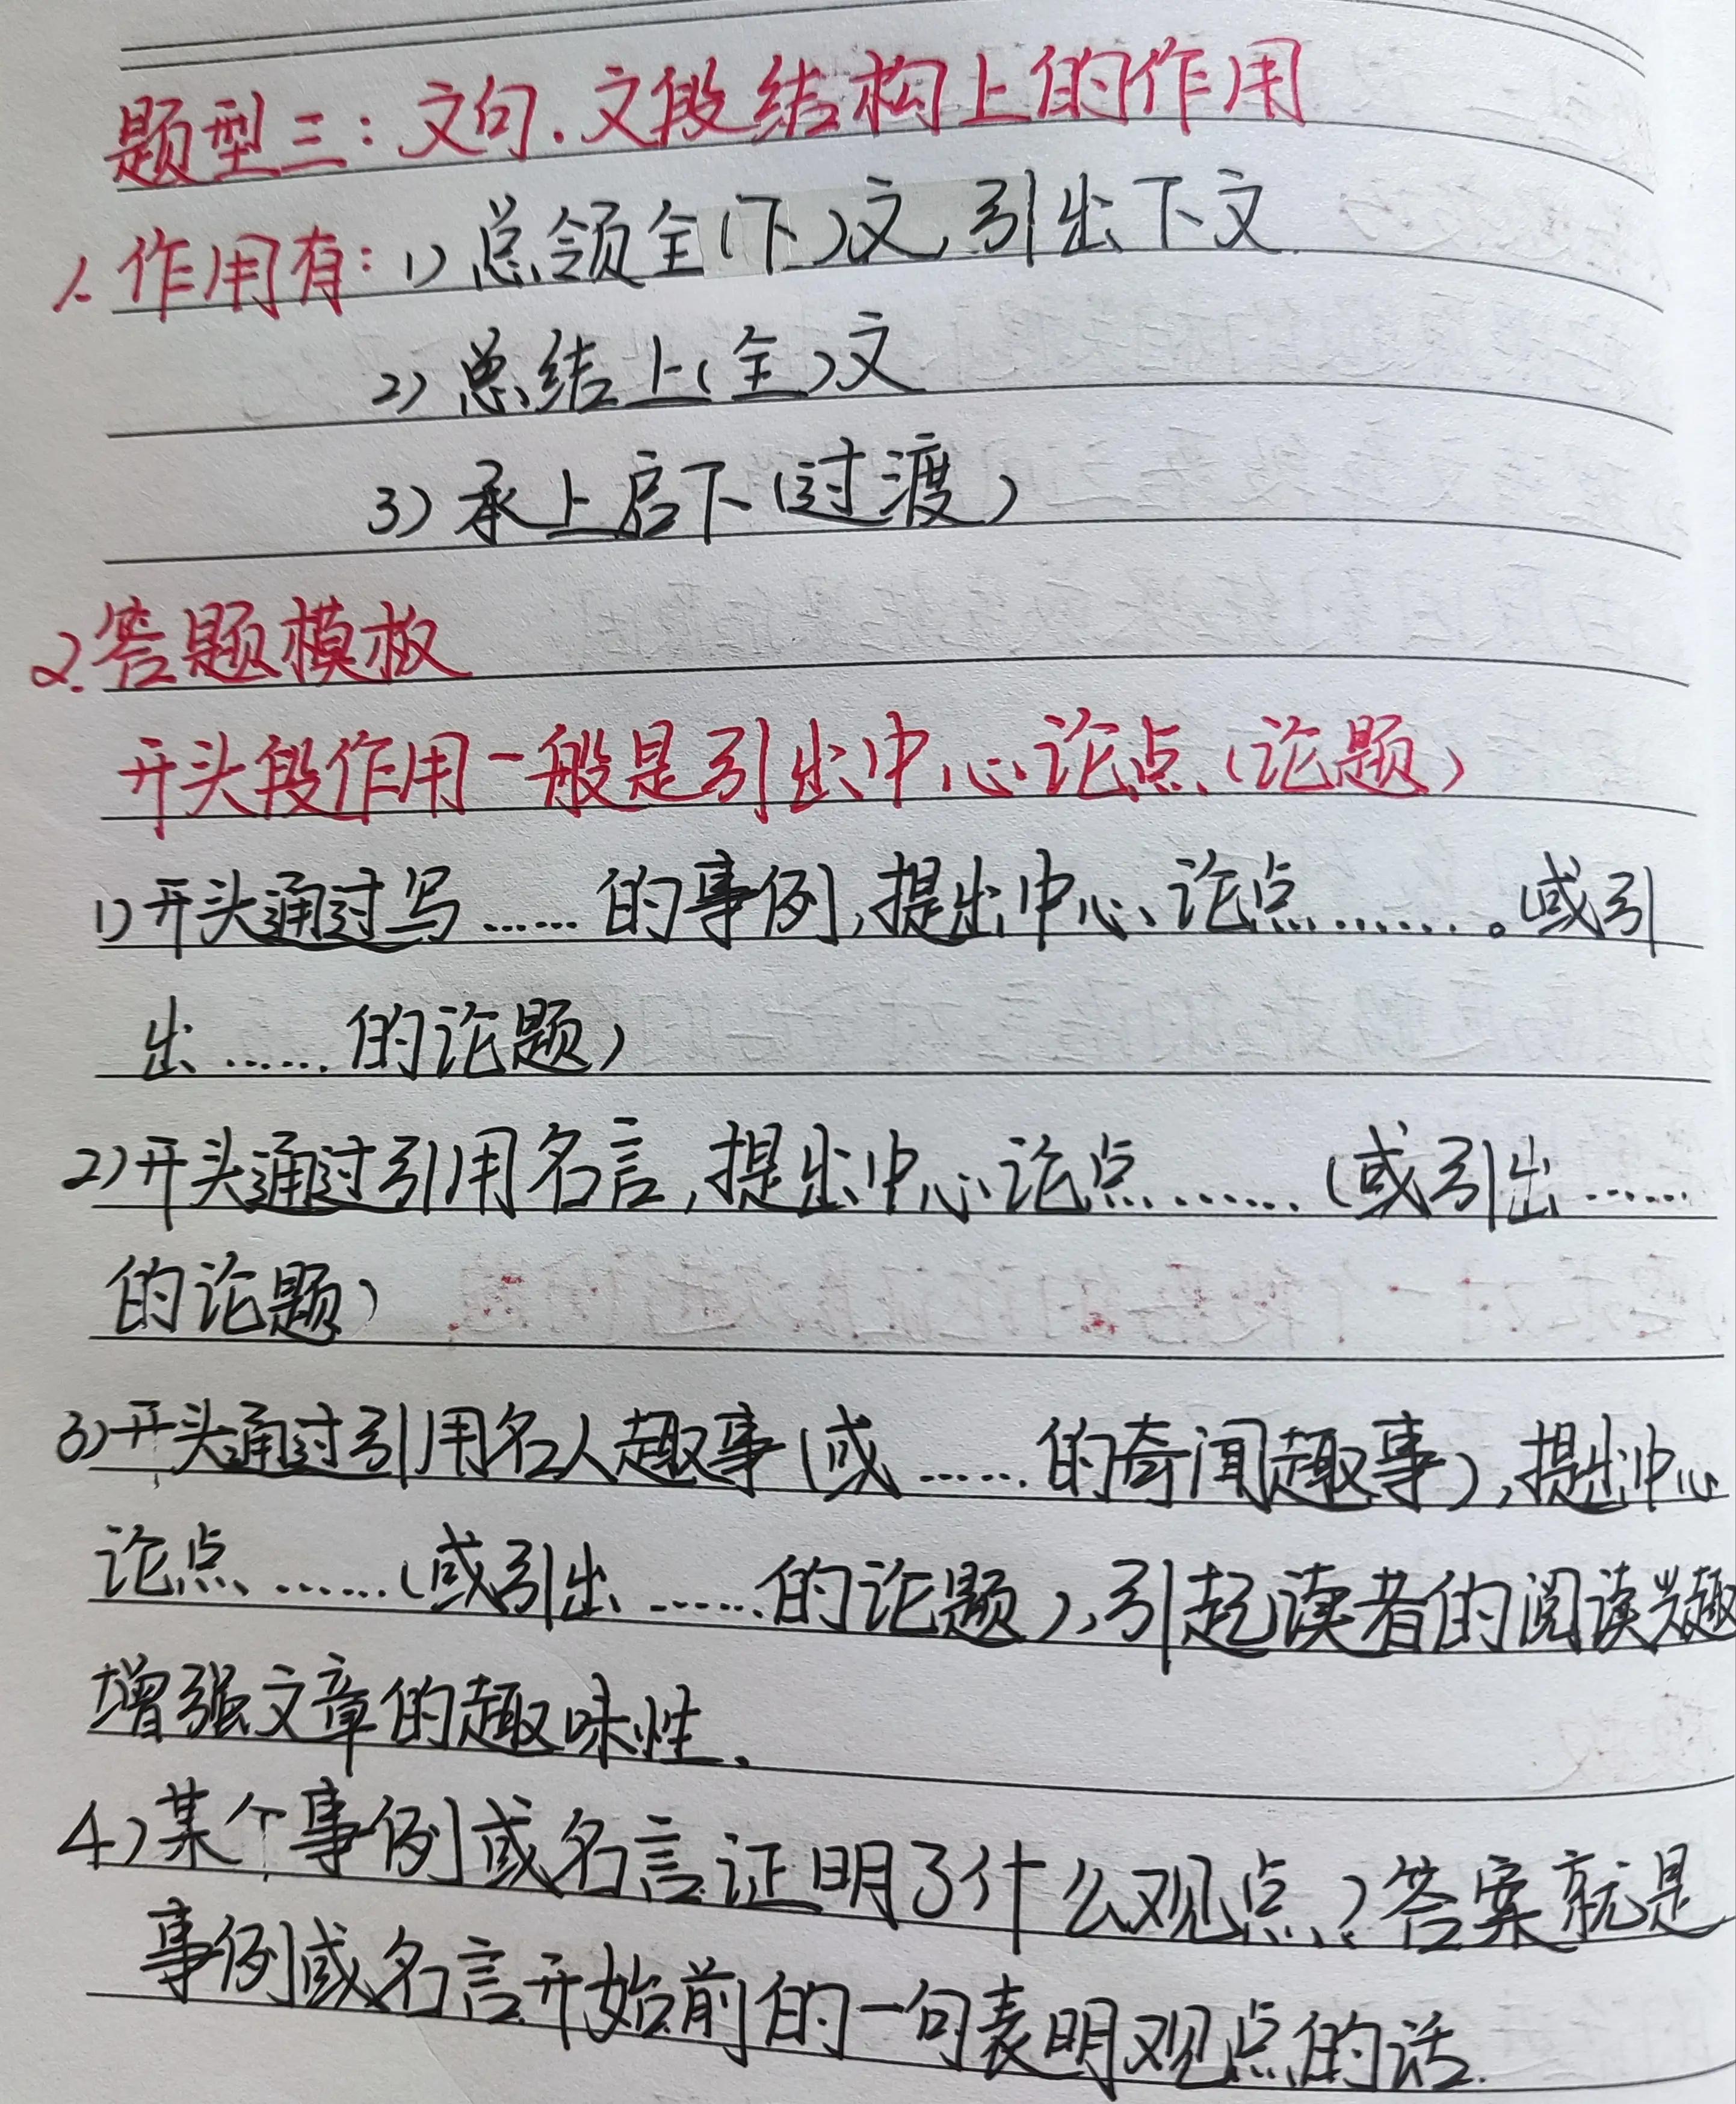 题型三：文句.文段结构上的作用
1.作用有：1)总领全(下)文,引出下文
2)总结上(全)文
3)承上启下(过渡)
2.答题模板
开头段作用一般是引出中心论点(论题)
1)开头通过写……的事例,提出中心论点………。(或引
出……的论题)
2)开头通过引用名言,提出中心论点……(或引出……
的论题)
3)开头通过引用名人趣事(或……的奇闻趣事),提出中心
论点……(或引出……的论题),引起读者的阅读兴趣
增强文章的趣味性.
4)某个事例或名言证明了什么观点?答案就是
事例或名言开始前的一句表明观点的话.